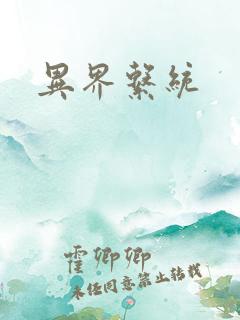 異界繫統
霍卿卿
未经同意禁止转载